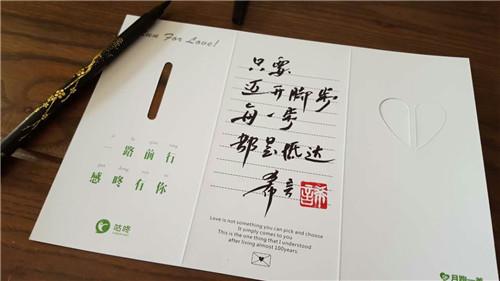 For Love!
一路前行
感咚有你
咕咚
只要
迈开脚步
每一步
都是抵达
Love is not something you can pick and choose
It simply comes to you
This is the one thing that I understood
after living almost 100years.
月跑一